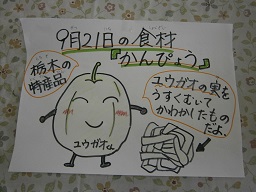 9月21日の食材
『かんぴょう』
栃木の
特産品
ユウガオの実を
うすくむいて
かわかしたもの
だよ。
ユウガオくん